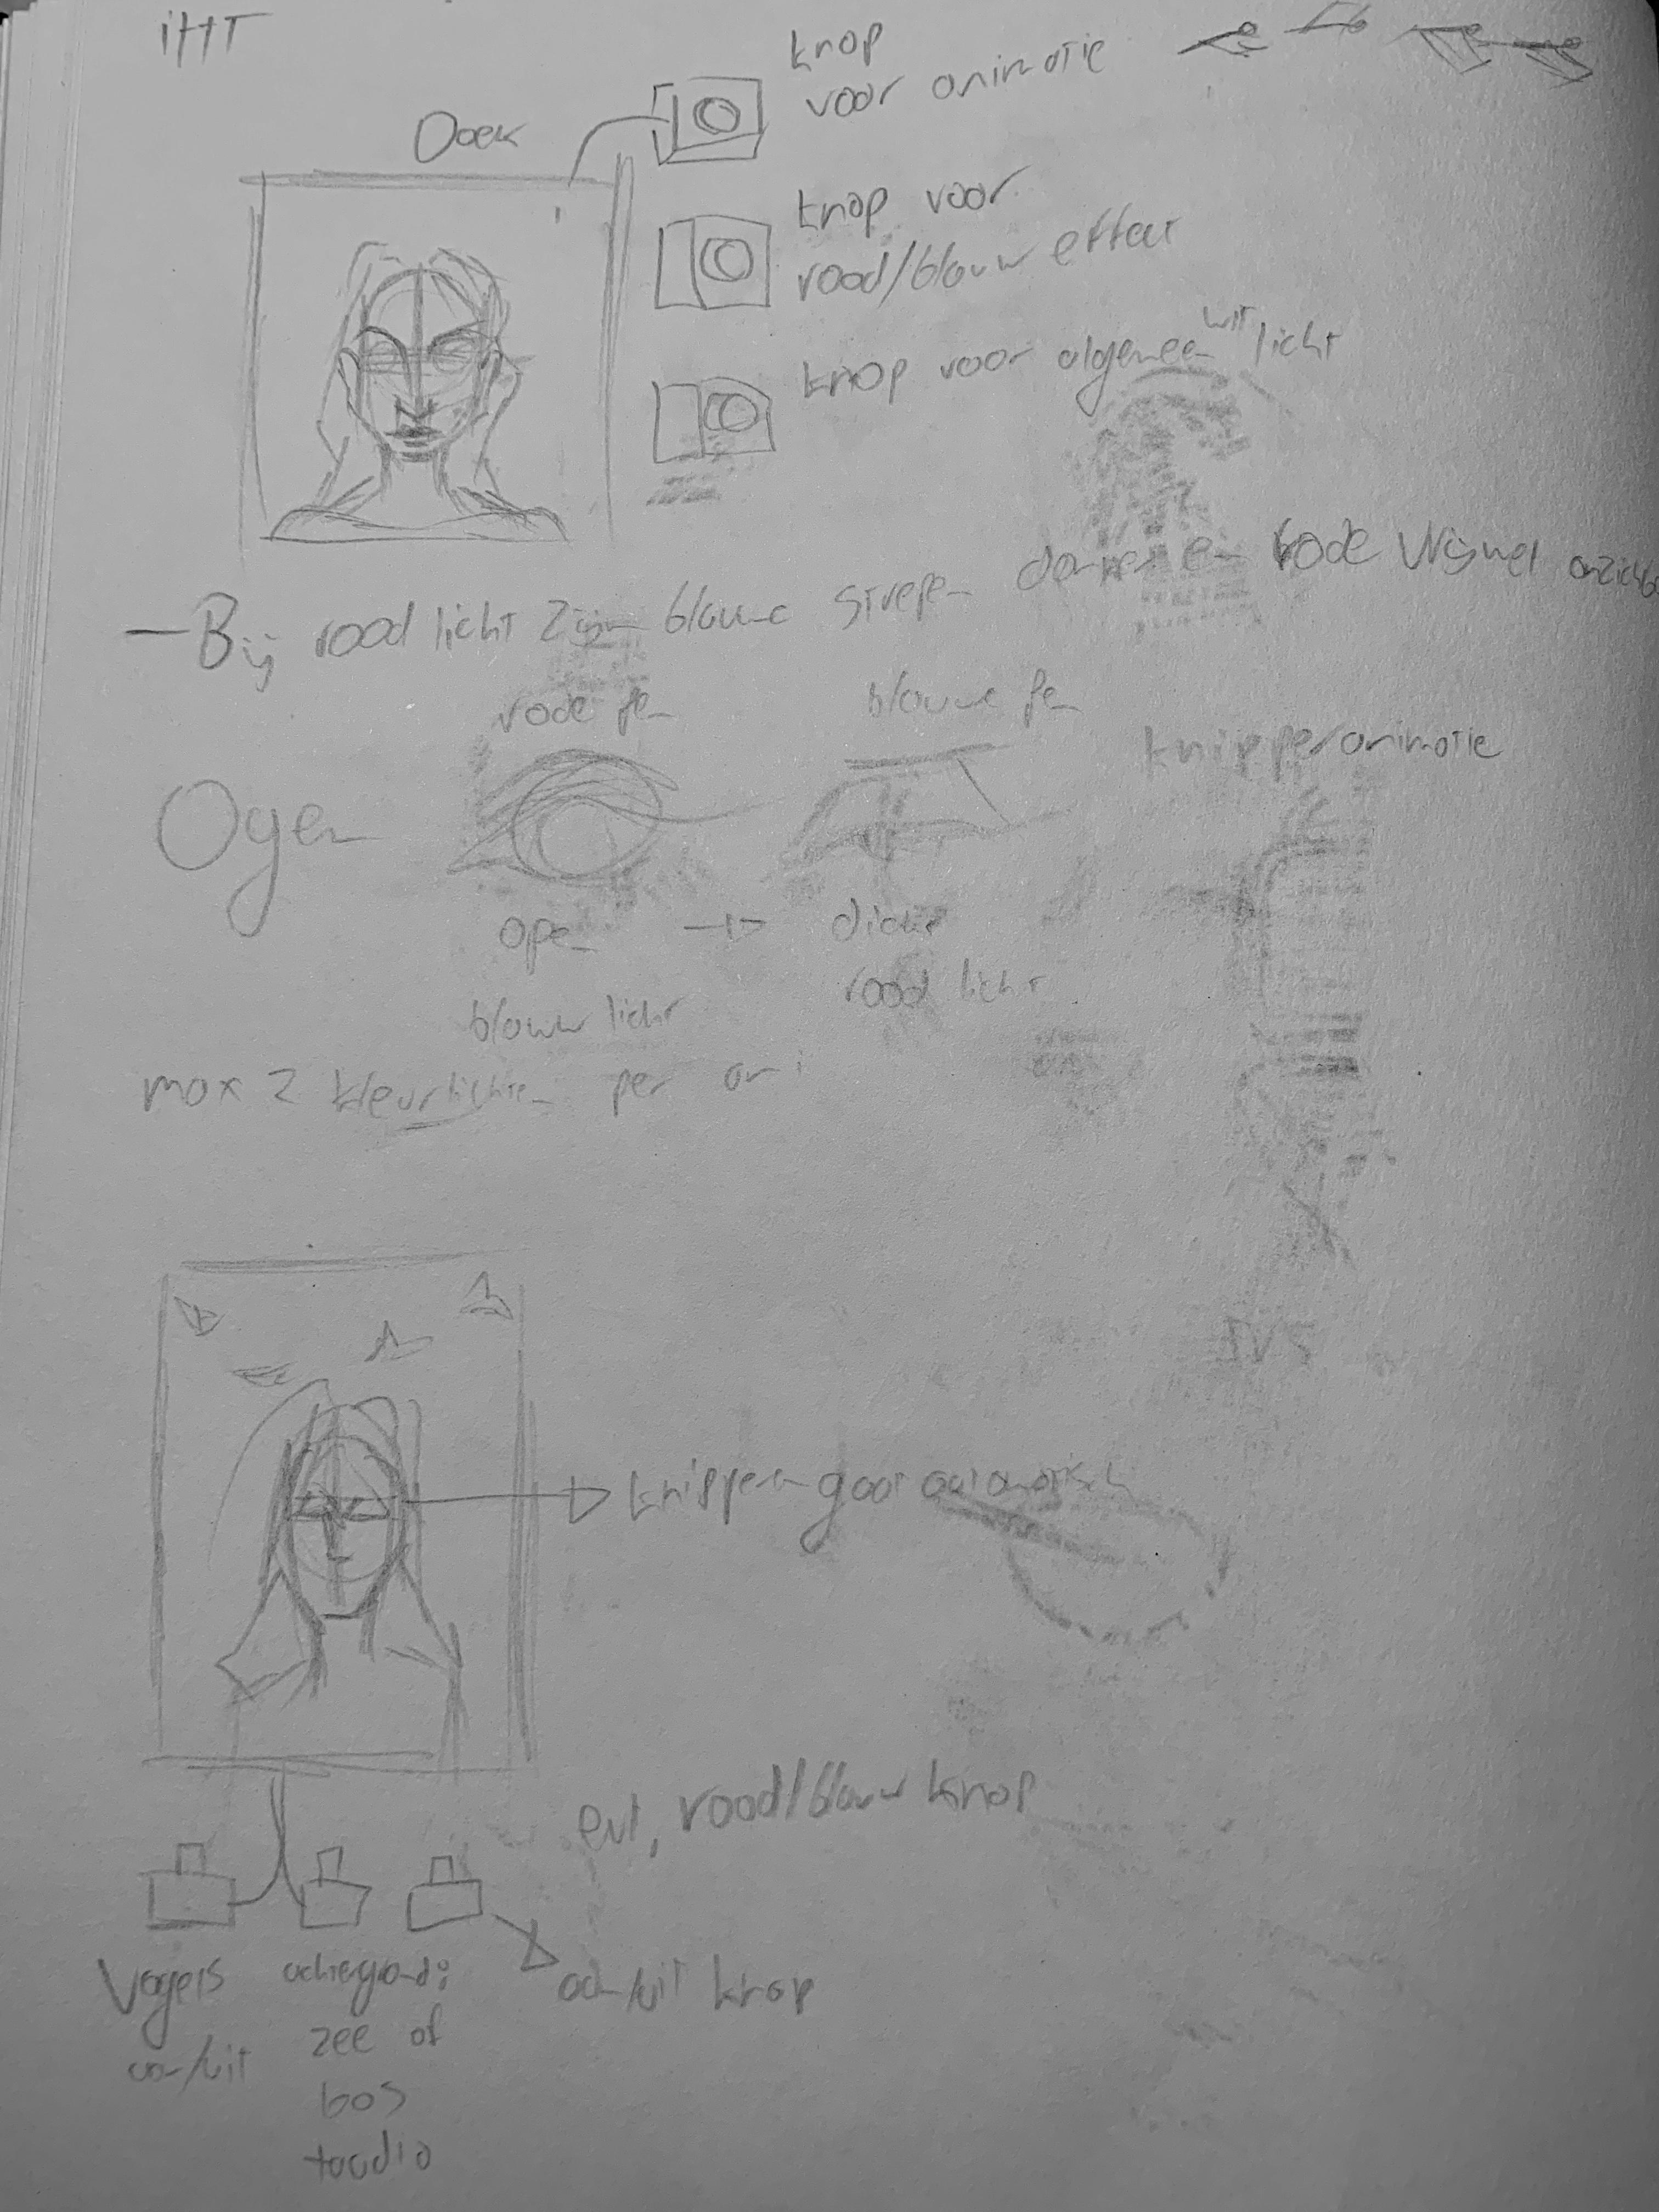 iHT
Doek
knop
voor animatie
knop voor
rood/blauw effect
knop voor algemeen wit licht
— Bij rood licht zijn blauwe strepen donker en rode vrijwel
rode pen
blauwe pen
knipperanimatie
Ogen
open → dicht
blauw licht
rood licht
max 2 kleurlichten per ani
knipperen gaat automatisch
evt, rood/blauw knop
Vogels
aan/uit
achtergrond:
zee of
bos
+audio
aan/uit knop